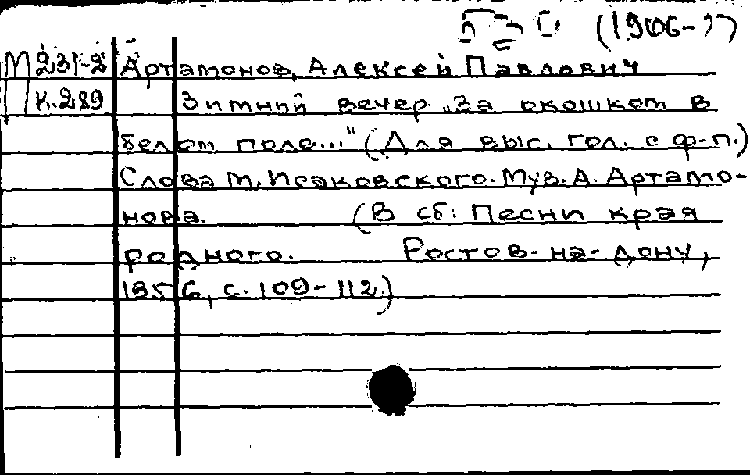 (1906-?)
М 231-2 Артамонов, Алексей Павлович
К.289 Зимний вечер „За окошком в
белом поле..." (Для выс. гол. с ф-п.)
Слова М. Исаковского. Муз. А. Артамо-
нова. (В сб: Песни края
родного. Ростов-на-Дону,
1956, с. 109-112.)